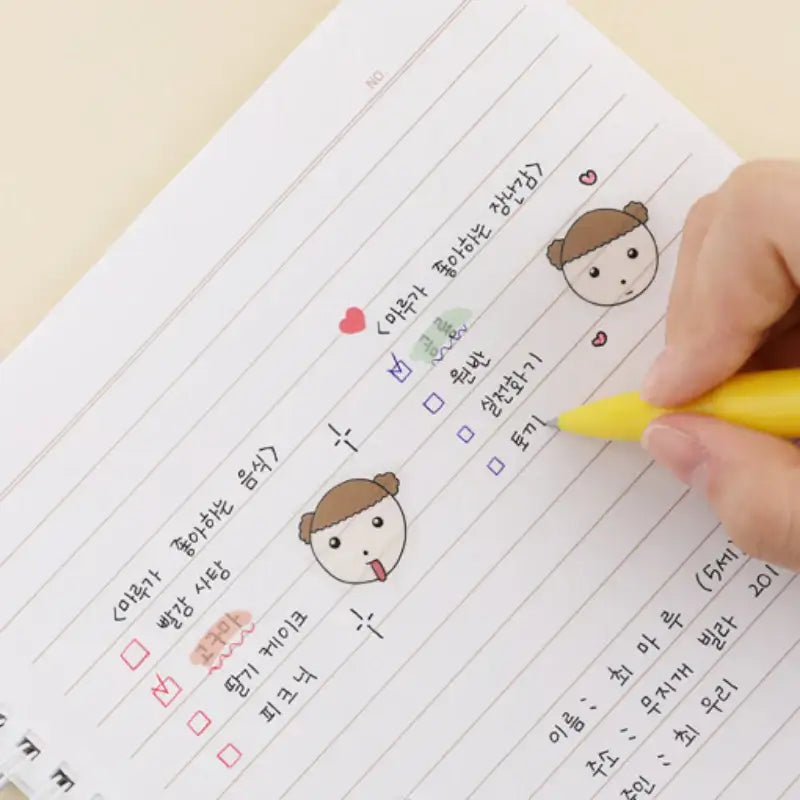 NO
<마루가 좋아하는 장난감>
공룡
원반
실전화기
토끼
<마루가 좋아하는 음식>
빨강 사탕
고구마
딸기 케이크
피크닉
이름 : 최 마 루 (5세)
주소 : 무지개 빌라 201
주인 : 최 우리